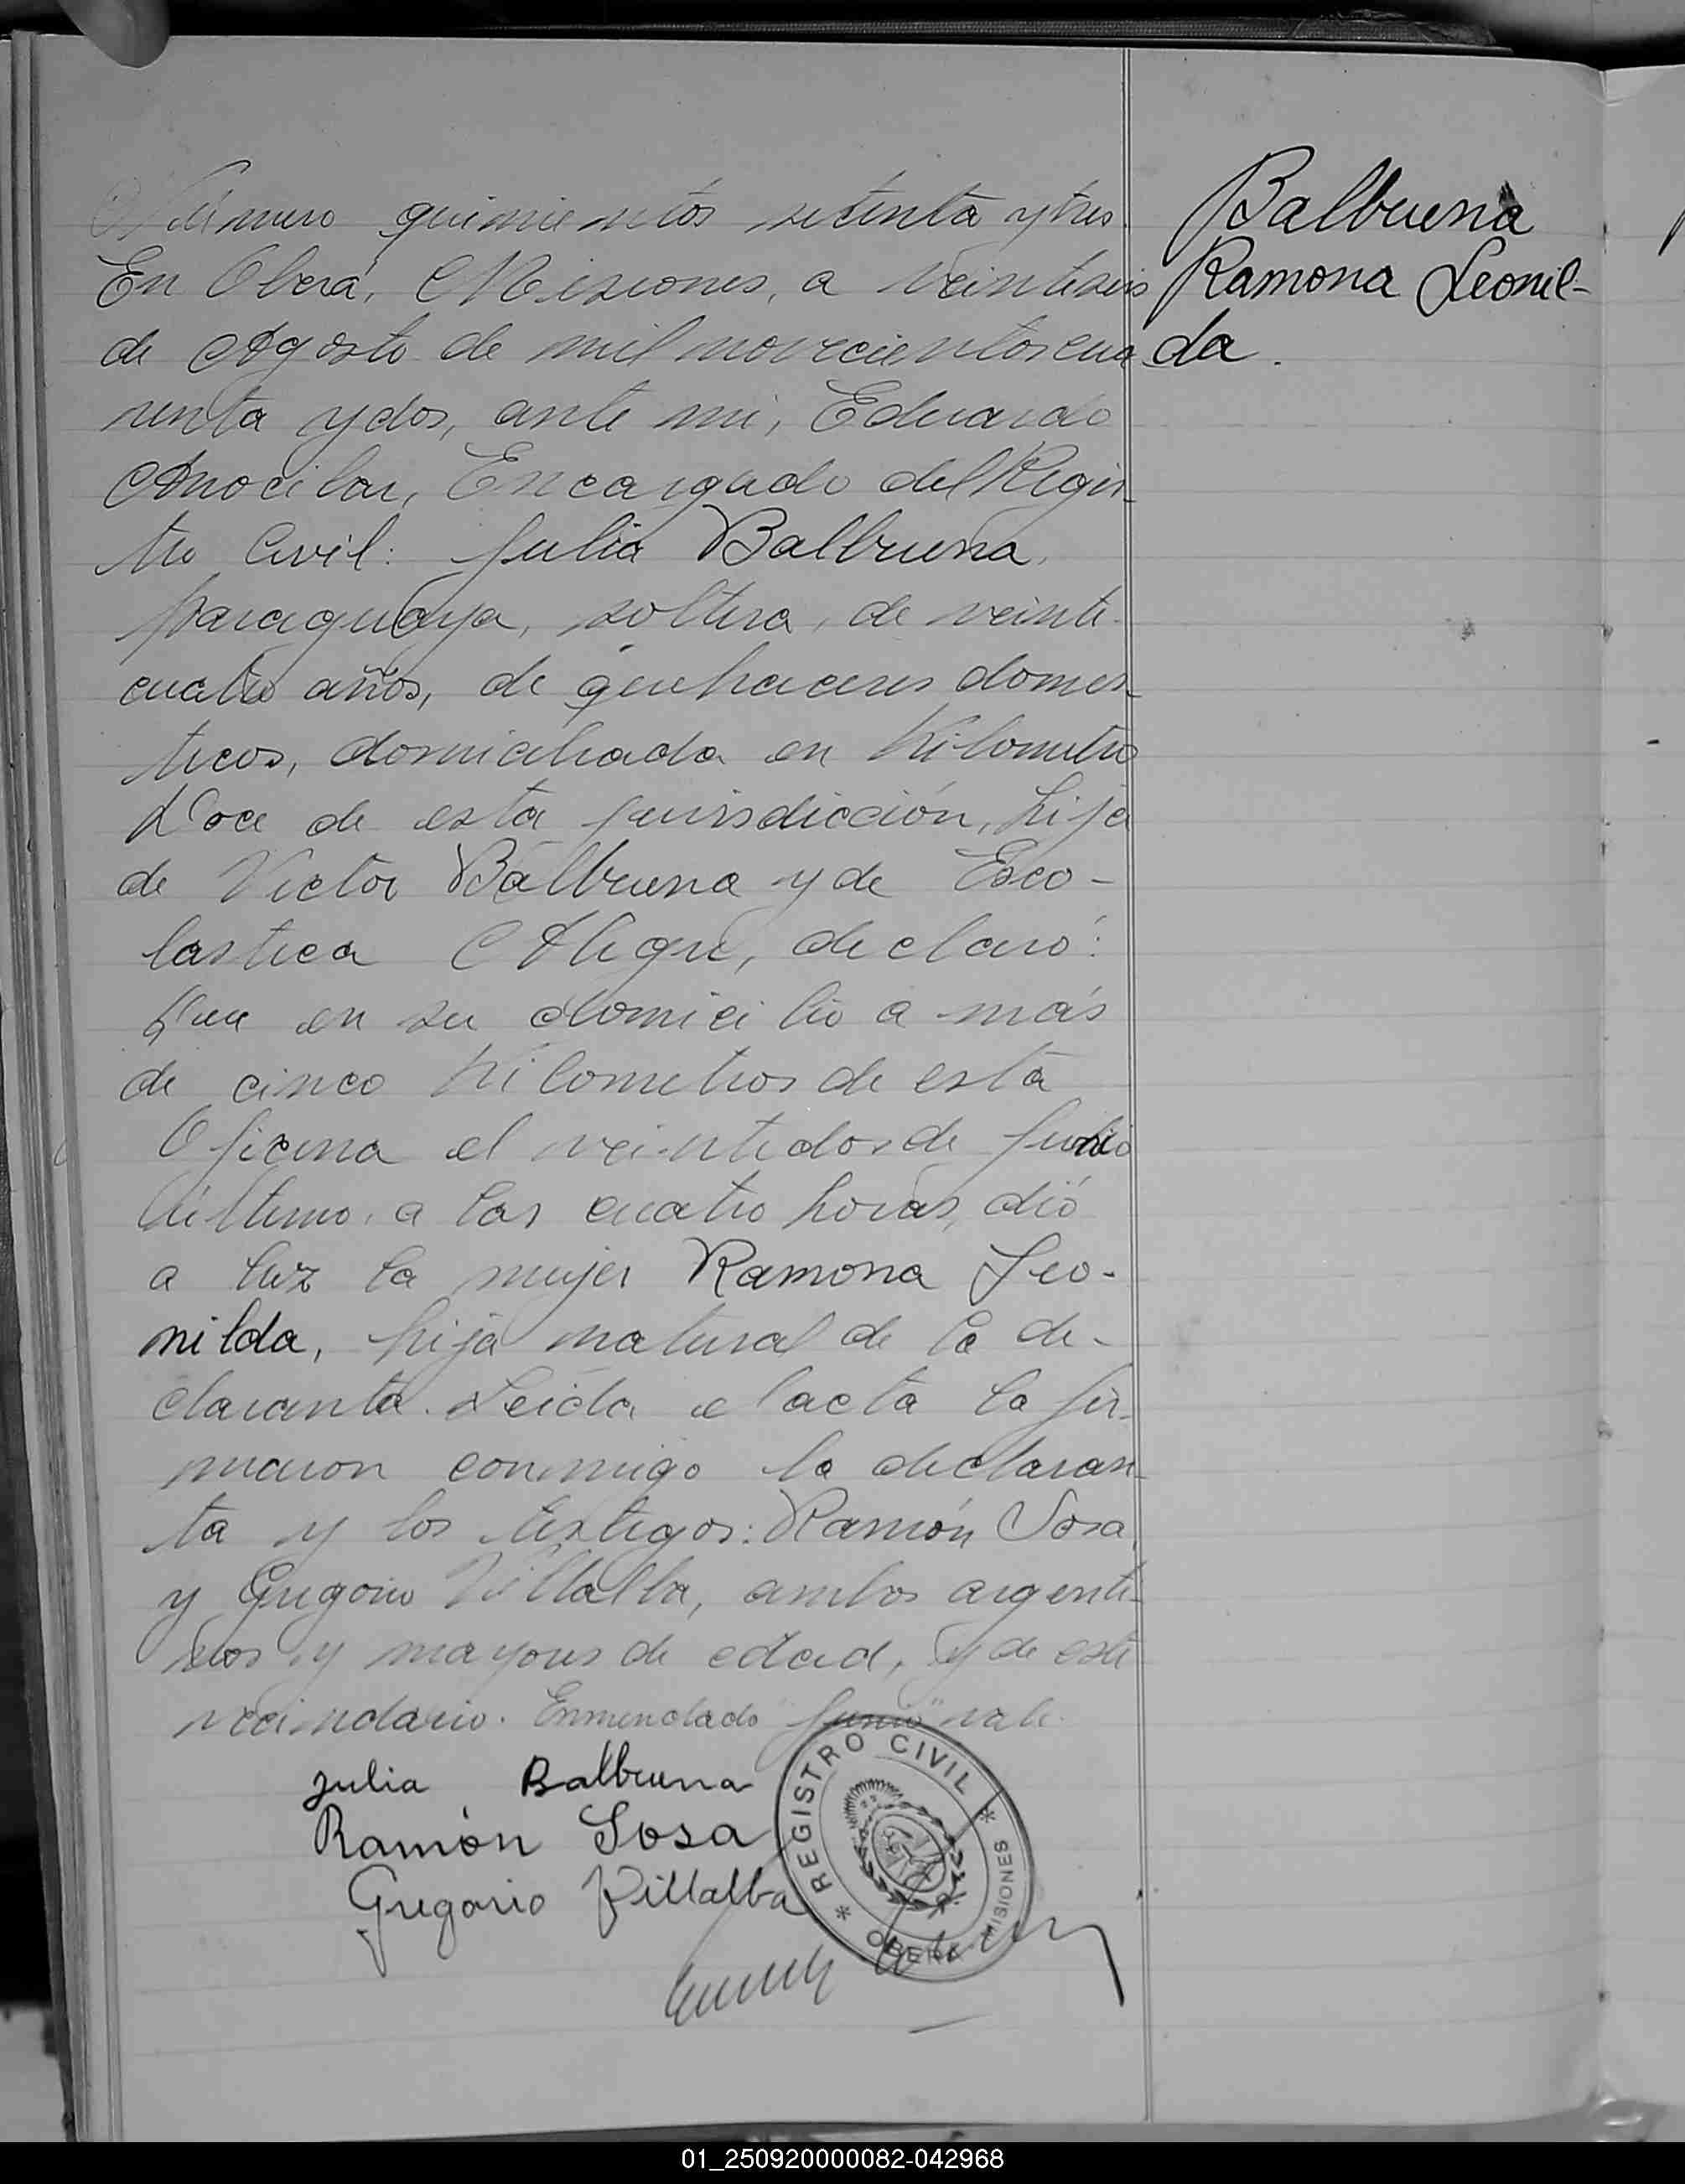 Número quinientos setenta y tres.
En Oberá, Misiones, a veintiseis
de Agosto de mil novecientos cua
renta y dos, ante mi, Eduardo
Encargado del Regis
tro Civil: Julia Balbuena,
paraguaya, soltera, de veinte
cuatro años, de quehaceres domes
ticos, domiciliada en Kilometro
Doce de esta jurisdicción, hija
de Victor Balbuena y de Esco-
lastica Alegre, declaró:
Que en su domicilio a más
de cinco Kilometros de esta
Oficina el veintidos de Junio
último, a las cuatro horas, dió
a luz la mujer Ramona Leo-
nilda, hija natural de la de-
claranta. Leida el acta la fir-
maron conmigo la declaran
ta y los testigos: Ramón Sosa,
y Gregorio Villalba, ambos argenti-
nos y mayores de edad, y de este
vecindario. Enmendado "Junio" vale.
Julia Balbuena
Ramón Sosa
Gregorio Villalba
* REGISTRO CIVIL *
OBERA - MISIONES
Balbuena
Ramona Leonil-
da.
01_250920000082-042968